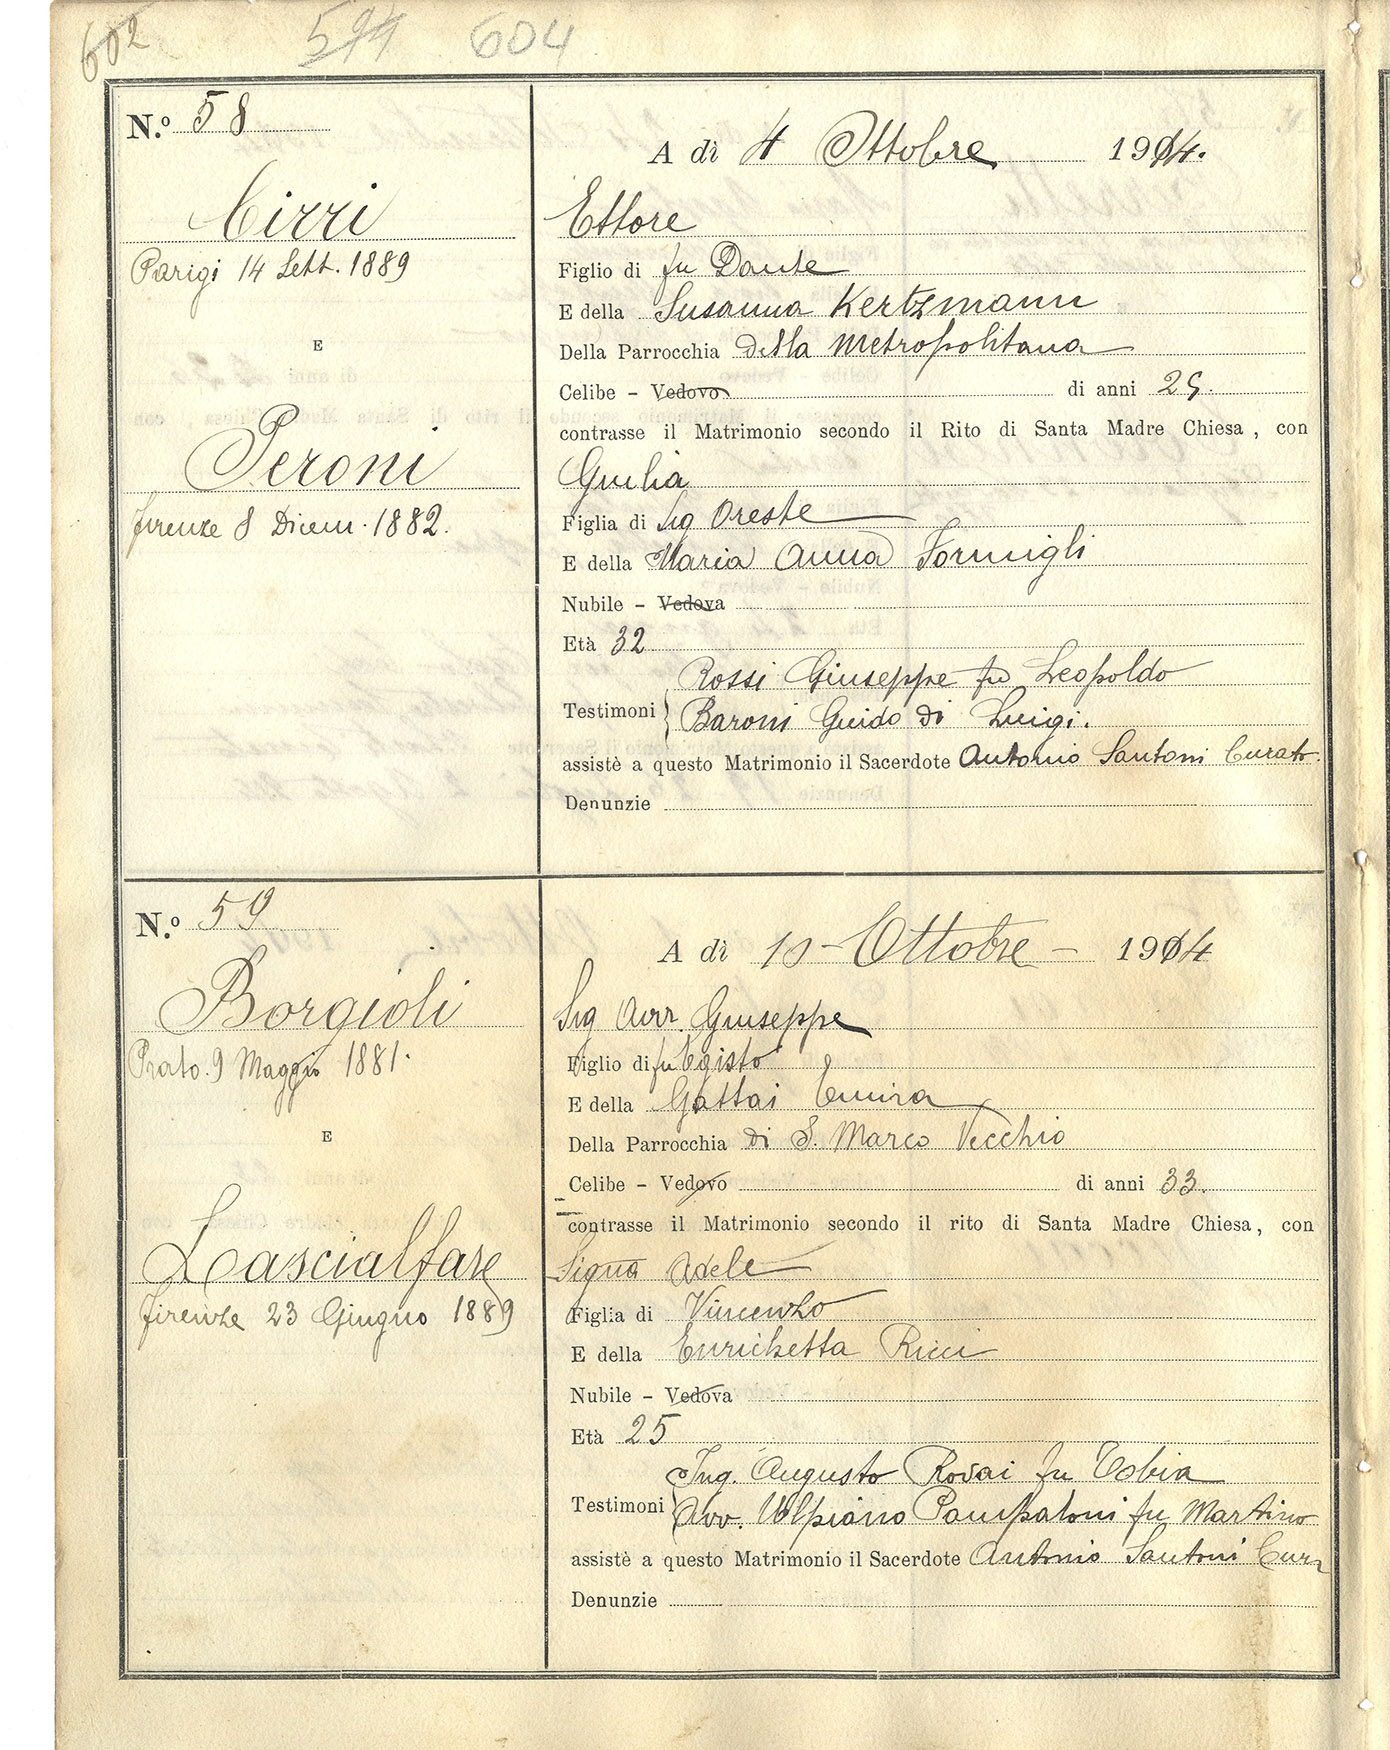 602 594 604
N.º 58
A dì 4 Ottobre 1914.
Cirri
Parigi 14 Sett. 1889
E
Peroni
Firenze 8 Dicem. 1882.
Ettore
Figlio di fu Dante
E della Susanna Kertzmann
Della Parrocchia della Metropolitana
Celibe - Vedovo di anni 25.
contrasse il Matrimonio secondo il Rito di Santa Madre Chiesa, con
Giulia
Figlia di Sig Oreste
E della Maria Anna Formigli
Nubile - Vedova
Età 32
Rossi Giuseppe fu Leopoldo
Testimoni Baroni Guido di Luigi.
assistè a questo Matrimonio il Sacerdote Antonio Santoni Curato.
Denunzie
N.º 59
A dì 10 - Ottobre - 1914
Borgioli
Prato. 9 Maggio 1881.
E
Lascialfare
Firenze 23 Giugno 1889
Sig Avv. Giuseppe
Figlio di fu Egisto
E della Gattai Emira
Della Parrocchia di S. Marco Vecchio
Celibe - Vedovo di anni 33.
contrasse il Matrimonio secondo il rito di Santa Madre Chiesa, con
Signa Adele
Figlia di Vincenzo
E della Enrichetta Ricci
Nubile - Vedova
Età 25
Ing. Augusto Rovai fu Tobia
Testimoni Avv. Ulpiano Pampaloni fu Martino
assistè a questo Matrimonio il Sacerdote Antonio Santoni Cur
Denunzie